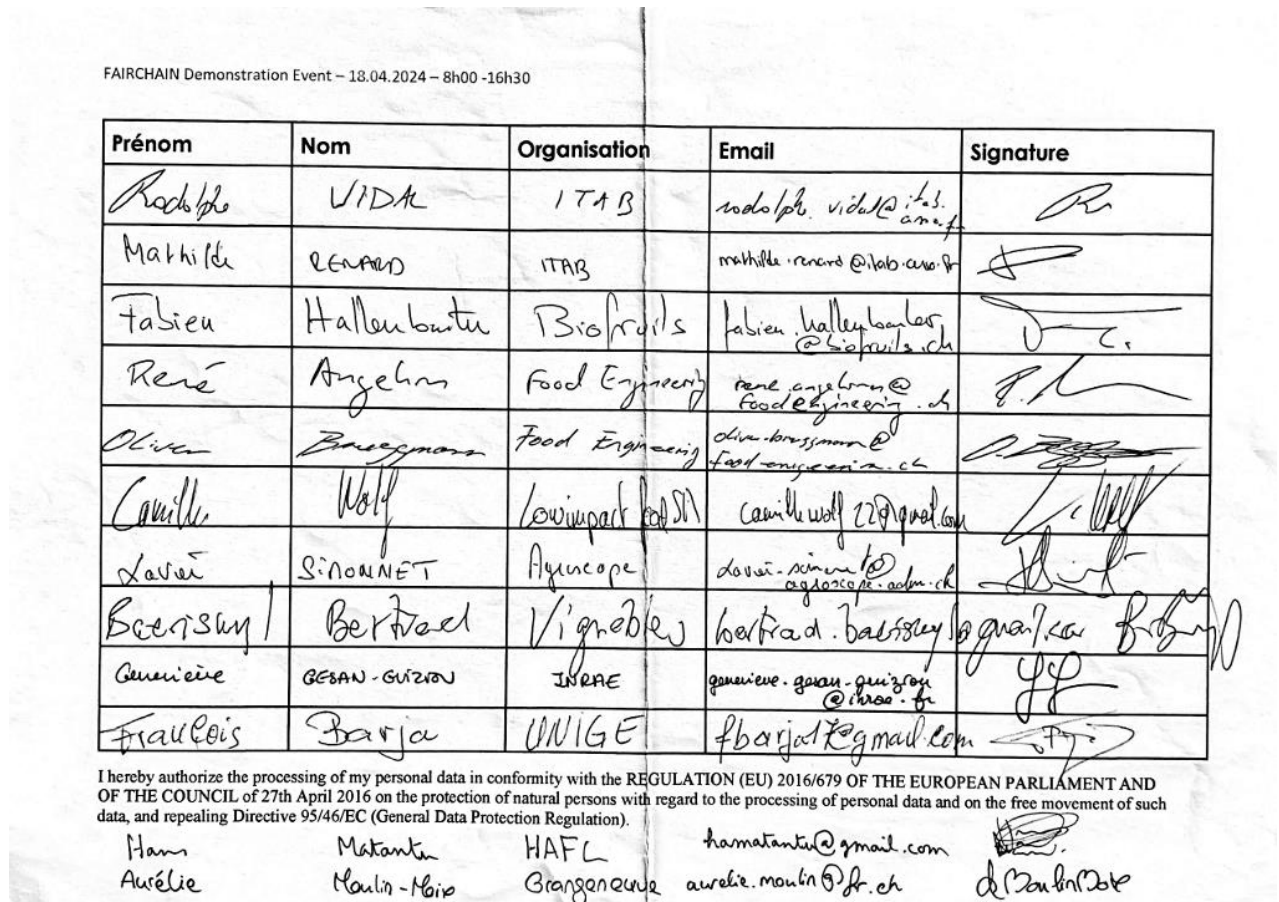 FAIRCHAIN Demonstration Event – 18.04.2024 – 8h00 -16h30
Prénom Nom Organisation Email Signature
Rodolphe VIDAL ITAB
Mathilde RENARD ITAB mathilde.renard@itab.asso.fr
Fabien Biofruits fabien.
@biofruits.ch
René Angehrn Food Engineering rene.angehrn@
foodengineering.ch
Oliver Food Engineering
Camille Wolf camillewolf22@gmail.com
Xavier SIMONNET Agroscope
agroscope.admin.ch
Baeriswyl Bertrand Vignobles
Geneviève GESAN-GUIZIOU INRAE genevieve.gesan-guiziou
@inrae.fr
François Barja UNIGE fbarja17@gmail.com
I hereby authorize the processing of my personal data in conformity with the REGULATION (EU) 2016/679 OF THE EUROPEAN PARLIAMENT AND
OF THE COUNCIL of 27th April 2016 on the protection of natural persons with regard to the processing of personal data and on the free movement of such
data, and repealing Directive 95/46/EC (General Data Protection Regulation).
Hans HAFL
Aurélie Moulin-Moix Grangeneuve aurelie.moulin@fr.ch